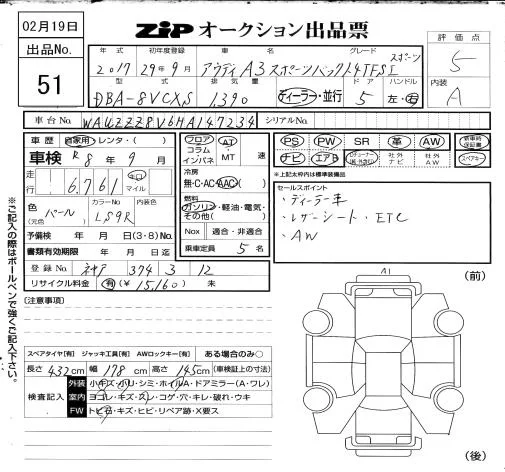 02月19日
ZiP オークション出品票
出品No.
51
年式 初年度登録 車名 グレード
2017 29年9月 アウディ A3 スポーツバック 1.4TFSI スポーツ
型式 排気量 ドア ハンドル
DBA-8VCXS 1,390 ディーラー・並行 5 左・右
評価点
5
内装
A
車台No. WAUZZZ8V6HA147234 シリアルNo.
車歴 自家用・レンタ・( )
車検 R 8年 9月
走行 6,761 キロ マイル
色 (元色) パール カラーNo LS9R 内装色
予備検 年 月 日(3・8)No.
書類有効期限 年 月 日迄
登録No. 374 3 12
リサイクル料金 有(¥15,160) 未
フロア コラム インパネ AT・MT 速
冷房 無・C・AC・AAC( )
燃料 ガソリン・軽油・電気・その他( )
Nox 適合・非適合
乗車定員 5名
PS PW SR 革 AW 新車時保証書
ナビ エアB 社外ナビ 社外AW スペアキー
※上記太枠内は標準装備品
セールスポイント
・ディーラー車
・レザーシート・ETC
・AW
[注意事項]
スペアタイヤ[有] ジャッキ工具[有] AWロックキー[有] ある場合のみ○
長さ 432cm 幅 178cm 高さ 145cm (車検証上の寸法)
検査記入
外装 小キズ・小リ・シミ・ホイルA・ドアミラー(A・ワレ)
室内 ヨゴレ・キズ・スレ・コゲ・穴・キレ・破れ・ウキ
FW トビ石・キズ・ヒビ・リペア跡・X要ス
A1
(前)
(後)
※ご記入の際はボールペンで強くご記入下さい。